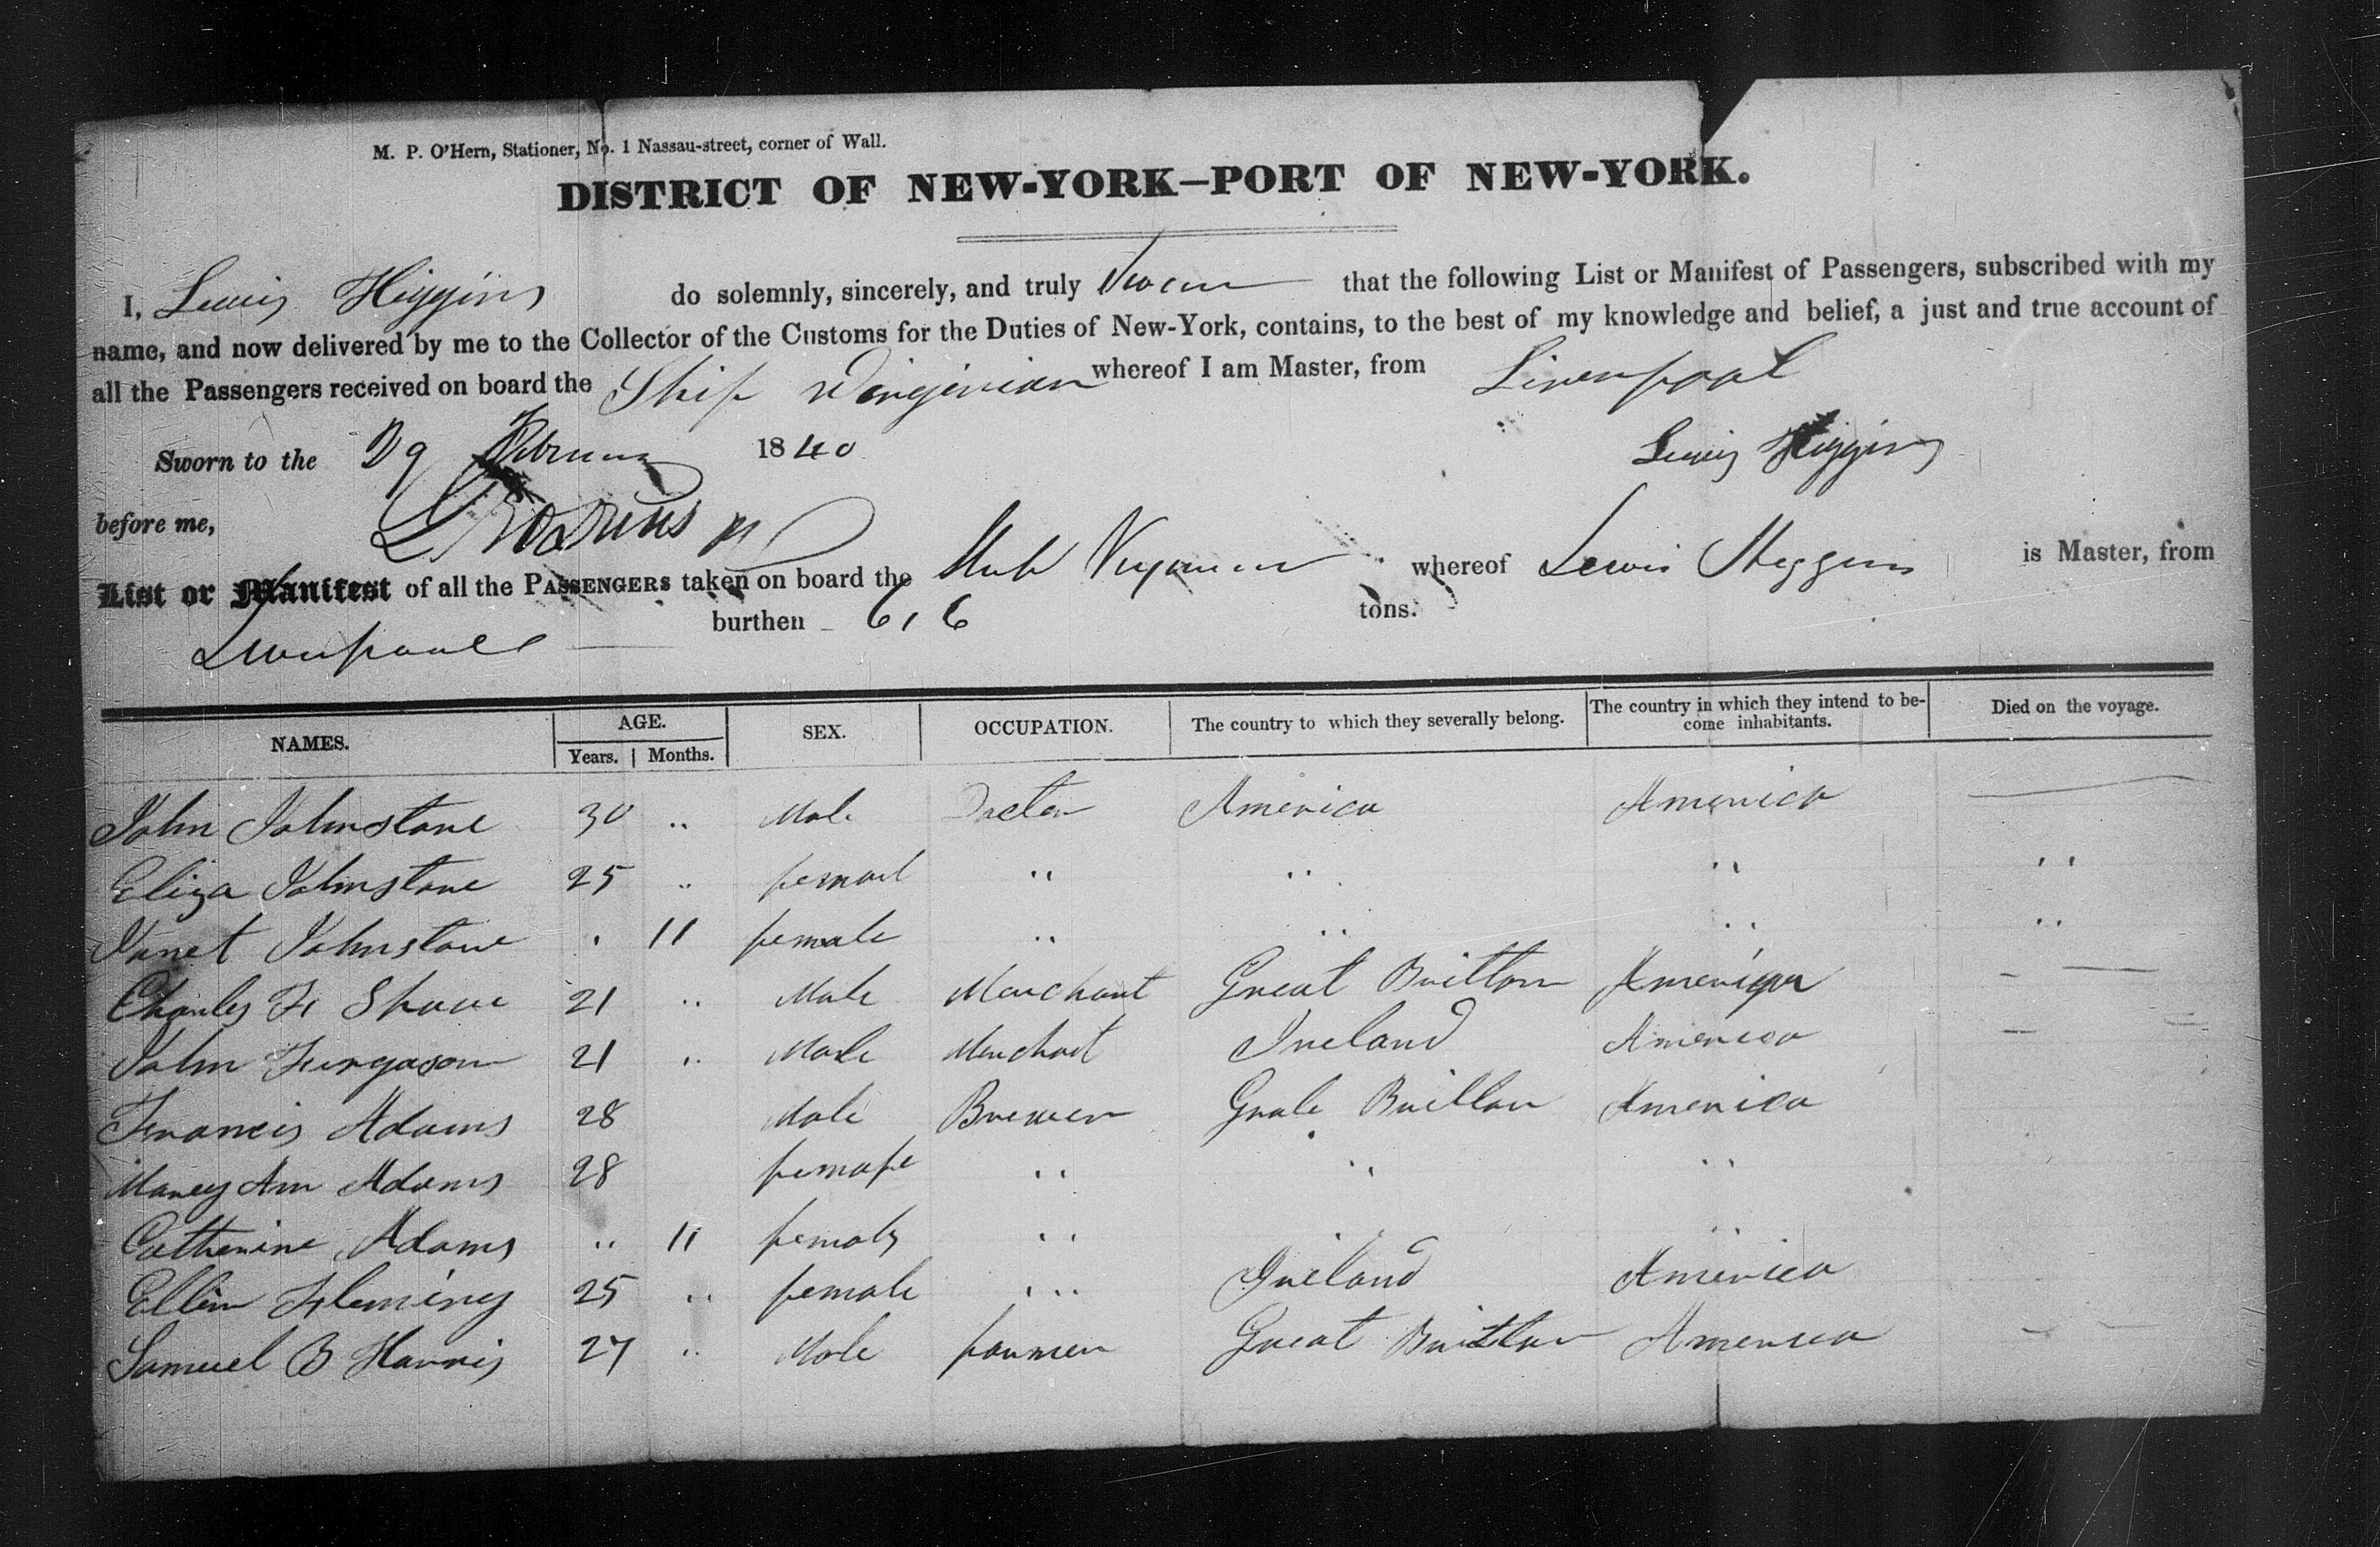 M. P. O'Hern, Stationer, No. 1 Nassau-street, corner of Wall.
DISTRICT OF NEW-YORK—PORT OF NEW-YORK.
I, Lewis Higgins do solemnly, sincerely, and truly Swear that the following List or Manifest of Passengers, subscribed with my
name, and now delivered by me to the Collector of the Customs for the Duties of New-York, contains, to the best of my knowledge and belief, a just and true account of
all the Passengers received on board the Ship Virginian whereof I am Master, from Liverpool
Sworn to the 29 1840 Lewis Higgins
before me,
List or Manifest of all the PASSENGERS taken on board the Ship Virginian whereof Lewis Higgins is Master, from
Liverpool burthen 616 tons.
NAMES. AGE. Years. Months. SEX. OCCUPATION. The country to which they severally belong. The country in which they intend to become inhabitants. Died on the voyage.
John Johnstone 30 " Male Docter America America —
Eliza Johnstone 25 " femail " " " "
Janet Johnstone " 11 female " " " "
Charles H 21 " Male Marchant Great Britton America — —
John Furgason 21 " Male Marchant Ireland America —
Francis Adams 28 Male Brewer Grate Brittan America
Marey Ann Adams 28 female " " "
Catherine Adams " 11 female " " "
Ellin Fleming 25 " female " Ireland America
Samuel B Harris 27 " Male farmer Great Brittan America — —